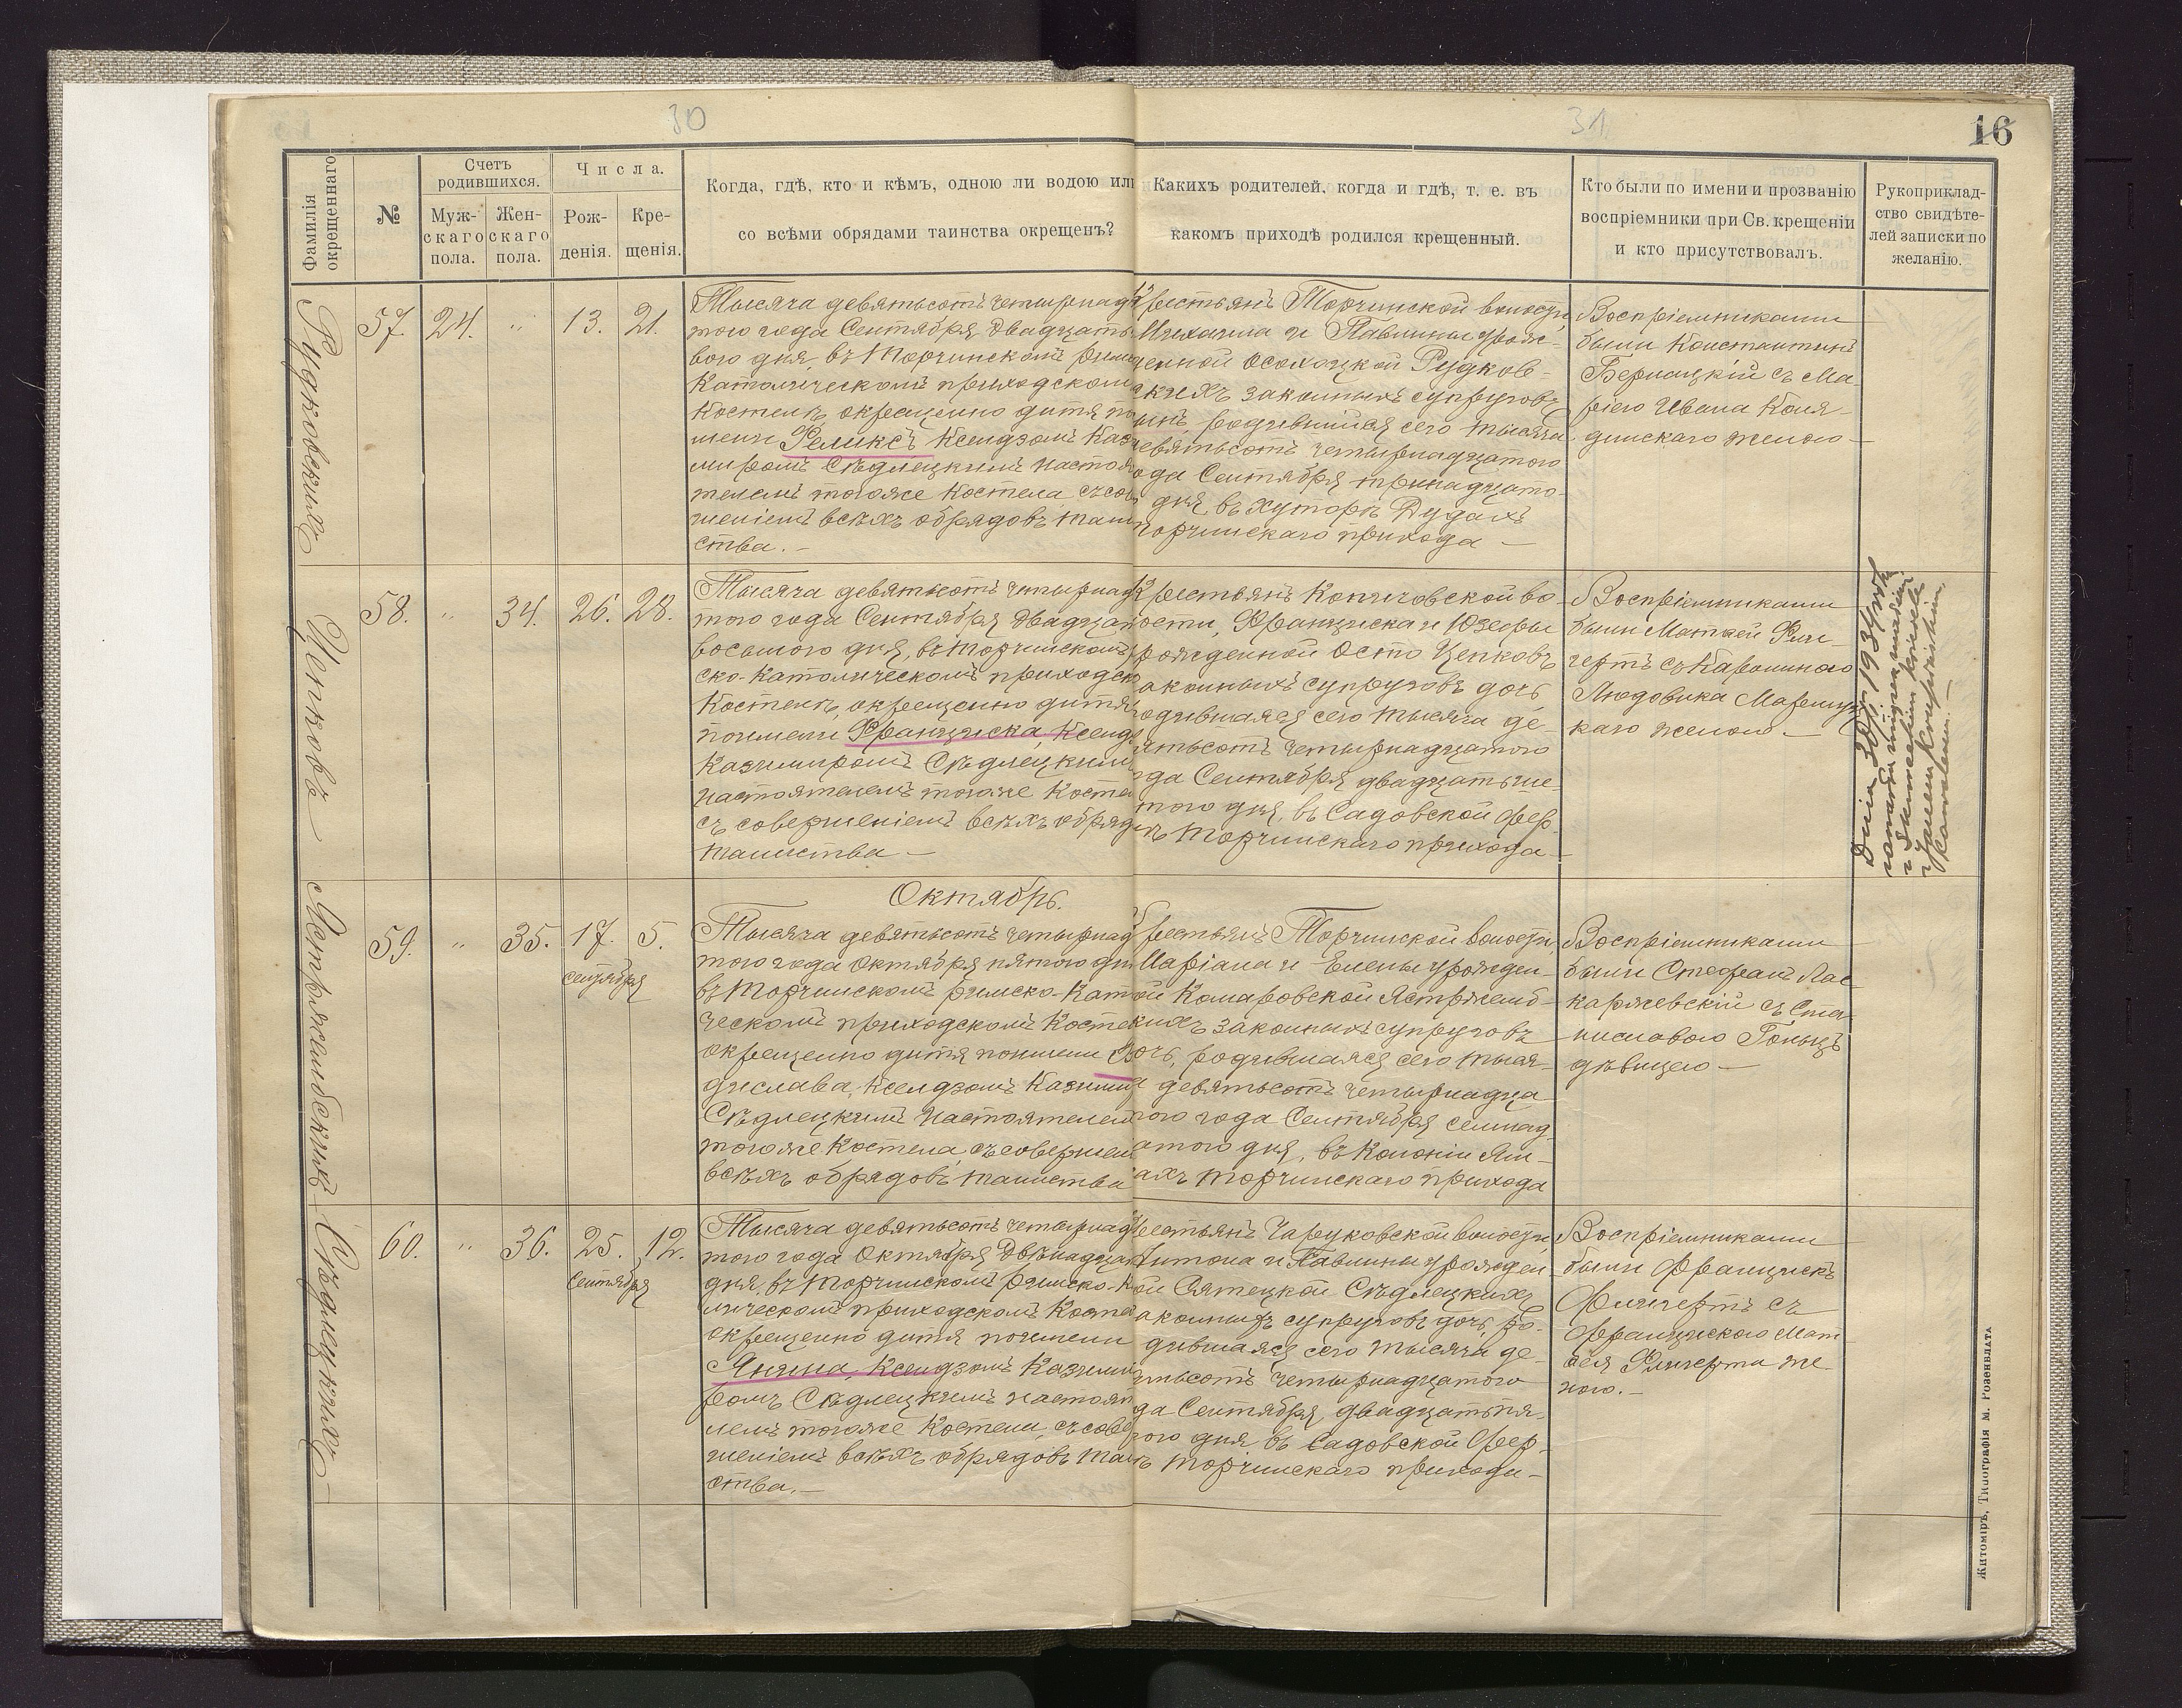 30
31
16
Фамилія окрещеннаго
№
Счетъ родившихся.
Мужскаго пола.
Женскаго пола.
Числа.
Рожденія.
Крещенія.
Когда, гдѣ, кто и кѣмъ, одною ли водою или
со всѣми обрядами таинства окрещенъ?
Какихъ родителей, когда и гдѣ, т. е. въ
какомъ приходѣ родился крещенный.
Кто были по имени и прозванію
воспріемники при Св. крещеніи
и кто присутствовалъ.
Рукоприклад-
ство свидѣте-
лей записки по
желанію.
Рудковскихъ
57. 24. " 13. 21.
Тысяча девятьсотъ четырнадца
того года Сентября двадцать
вого дня, въ Торчинскомъ римс
Католическомъ приходскомъ
Костелѣ, окрещено дитя по
мени Феликсъ Ксендзомъ Кази
миромъ Сѣдлецкимъ Настоя
телемъ тогоже Костела, съ сов
шеніемъ всѣхъ обрядовъ таин
ства. —
Крестьянъ Торчинской волости,
Михаила и Павлины урож-
денной Осохоцкой Рудков-
скихъ законныхъ супруговъ
сынъ, родившійся сего тысяча
девятьсотъ четырнадцатого
года Сентября тринадцато-
дня, въ хуторѣ Дудахъ
Торчинскаго прихода —
Воспріемниками
были Константинъ
Бернацкій съ Ма
ріею Ивана Коля-
динскаго женою —
Цепковъ
58. " 34. 26. 28.
Тысяча девятьсотъ четырнад
того года Сентября двадцат
восьмого дня, въ Торчинскомъ
ско-Католическомъ приходск
Костелѣ, окрещено дитя
поимени Франциска, Ксенд
Казимиромъ Сѣдлецким
настоятелемъ тогоже Косте
съ совершеніемъ всѣхъ обряд
таинства —
Крестьянъ Копачовской во
ости, Франциска и Юзефы
рожденной Осто Цепковъ
аконныхъ супруговъ дочь,
одившаяся сего тысяча де-
ятьсотъ четырнадцатого
да Сентября двадцать ше-
того дня, въ Садовской фер-
ѣ Торчинскаго прихода —
Воспріемниками
были Матвей Фли-
гертъ съ Каролиною
Людовика Мариц
каго женою. —
Dnia 30 1934 roku
Октябрь.
Ястржембскихъ
59. " 35. 17. 5.
сентября
Тысяча девятьсотъ четырнад
того года Октября пятого дн
въ Торчинскомъ римско-Кат
ческомъ приходскомъ Косте
окрещено дитя поимени
диславa, Ксендзомъ Казими
Сѣдлецкимъ Настоятелем
тогоже Костела, съ совершен
всѣхъ обрядовъ таинства
рестьянъ Торчинской волости,
Маріана и Елены урожден-
ой Комаровской Ястржемб-
кихъ законныхъ супруговъ
очь, родившаяся сего тыся-
девятьсотъ четырнадца
того года Сентября семнад-
атого дня, въ Колоніи Ям-
ахъ Торчинскаго прихода
Воспріемниками
были Стефанъ Лас-
каржевскій съ Ста-
ниславою Голицъ
дѣвицею —
Сѣдлецкихъ
60. " 36. 25. 12.
Сентября
Тысяча девятьсотъ четырнад
того года Октября Двѣнадцат
дня, въ Торчинскомъ римско-К
лическомъ приходскомъ Косте
окрещено дитя поимени
Янина, Ксендзомъ Казими
ромъ Сѣдлецкимъ настоят
лемъ тогоже Костела, съ сове
шеніемъ всѣхъ обрядовъ таи
ства. —
рестьянъ Чаруковской волости,
Антона и Павлины урожден
ой Святецкой Сѣдлецкихъ
аконныхъ супруговъ дочь, ро-
дившаяся сего тысяча де-
ятьсотъ четырнадцатого
да Сентября, двадцать пя-
того дня, въ Садовской Фер-
ѣ Торчинскаго прихода —
Воспріемниками
были Францискъ
Флигертъ съ
Францискою Мат
вея Флигерта же
ною. —
Житоміръ, Типографія М. Розенблата